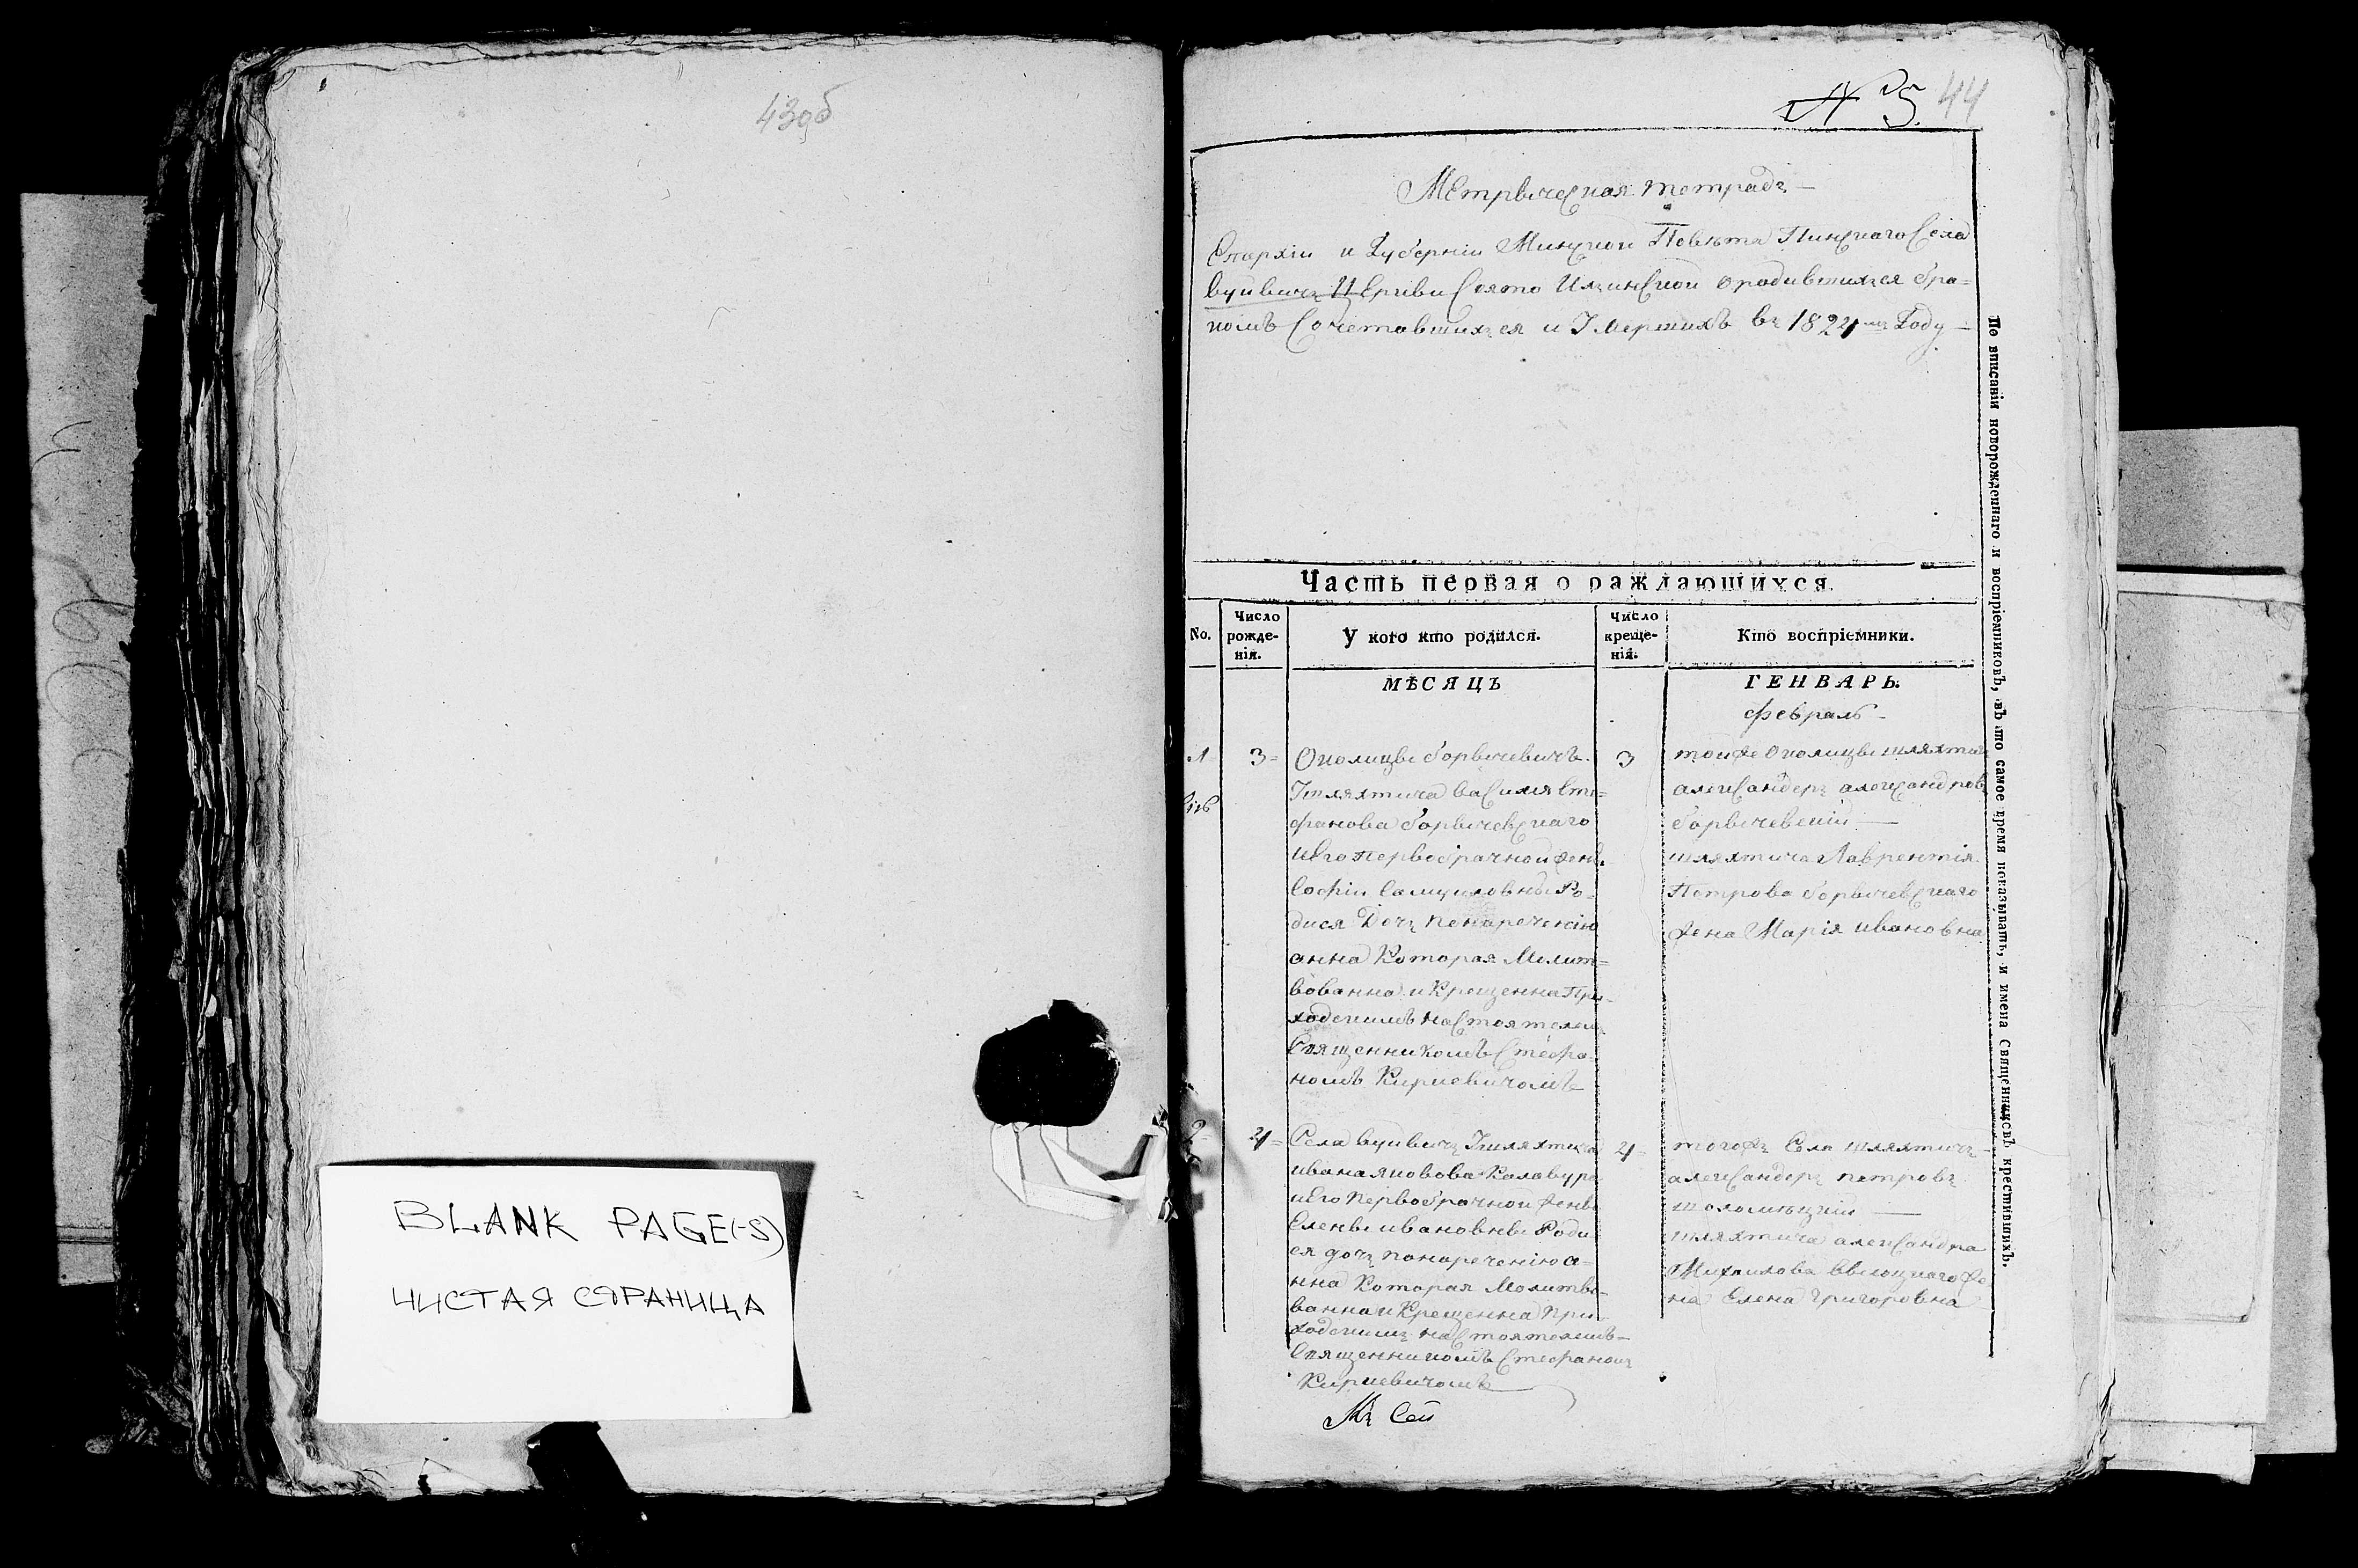 43об
BLANK PAGE(-S)
ЧИСТАЯ СТРАНИЦА
№ 5. 44
Метрическая тетрадь —
Епархіи и Губерніи Минской Повѣта Пинского Села
вуивичъ Церкви Свято Илинской о родившихся бра=
комъ Сочетавшихся и Умершихъ въ 1824мъ Году —
Часть первая о раждающихся.
No.
Число рожде-нія.
У кого кто родился.
Число креще-нія.
Кто воспріемники.
МѢСЯЦЪ
ГЕНВАРЬ.
февраль —
1
3=
Околицы борычевичъ
Ушляхтича василия Сте=
фанова борычевского
иего первобрачной жены
Софіи Самуиловны Ро=
дися Дочь понареченію
анна Которая Молит=
вованна и Крещенна При=
ходскимъ настоятелемъ
Священникомъ Стефа=
номъ Киркевичомъ
3
тойже Околицы шляхтичъ
александеръ александровъ
борычевский —
шляхтича Лаврентія
Петрова борычевского
жена Марія ивановна
2
4=
Села вуивичъ Ушляхтича
ивана
иего первобрачной жены
Елены ивановны Роди
ся дочь понареченію а=
нна Которая Молитво=
ванна и Крещенна при=
ходскимъ настоятелемъ=
Священникомъ Стефаномъ
Киркевичомъ
4=
тогожъ Села шляхтичъ=
александеръ петровъ
шляхтича александра
Михаилова же
на Елена григоровна
Къ Сей
По вписаніи новорожденнаго и воспріемниковъ, въ то самое время показывать, и имена Священниковъ крестившихъ.